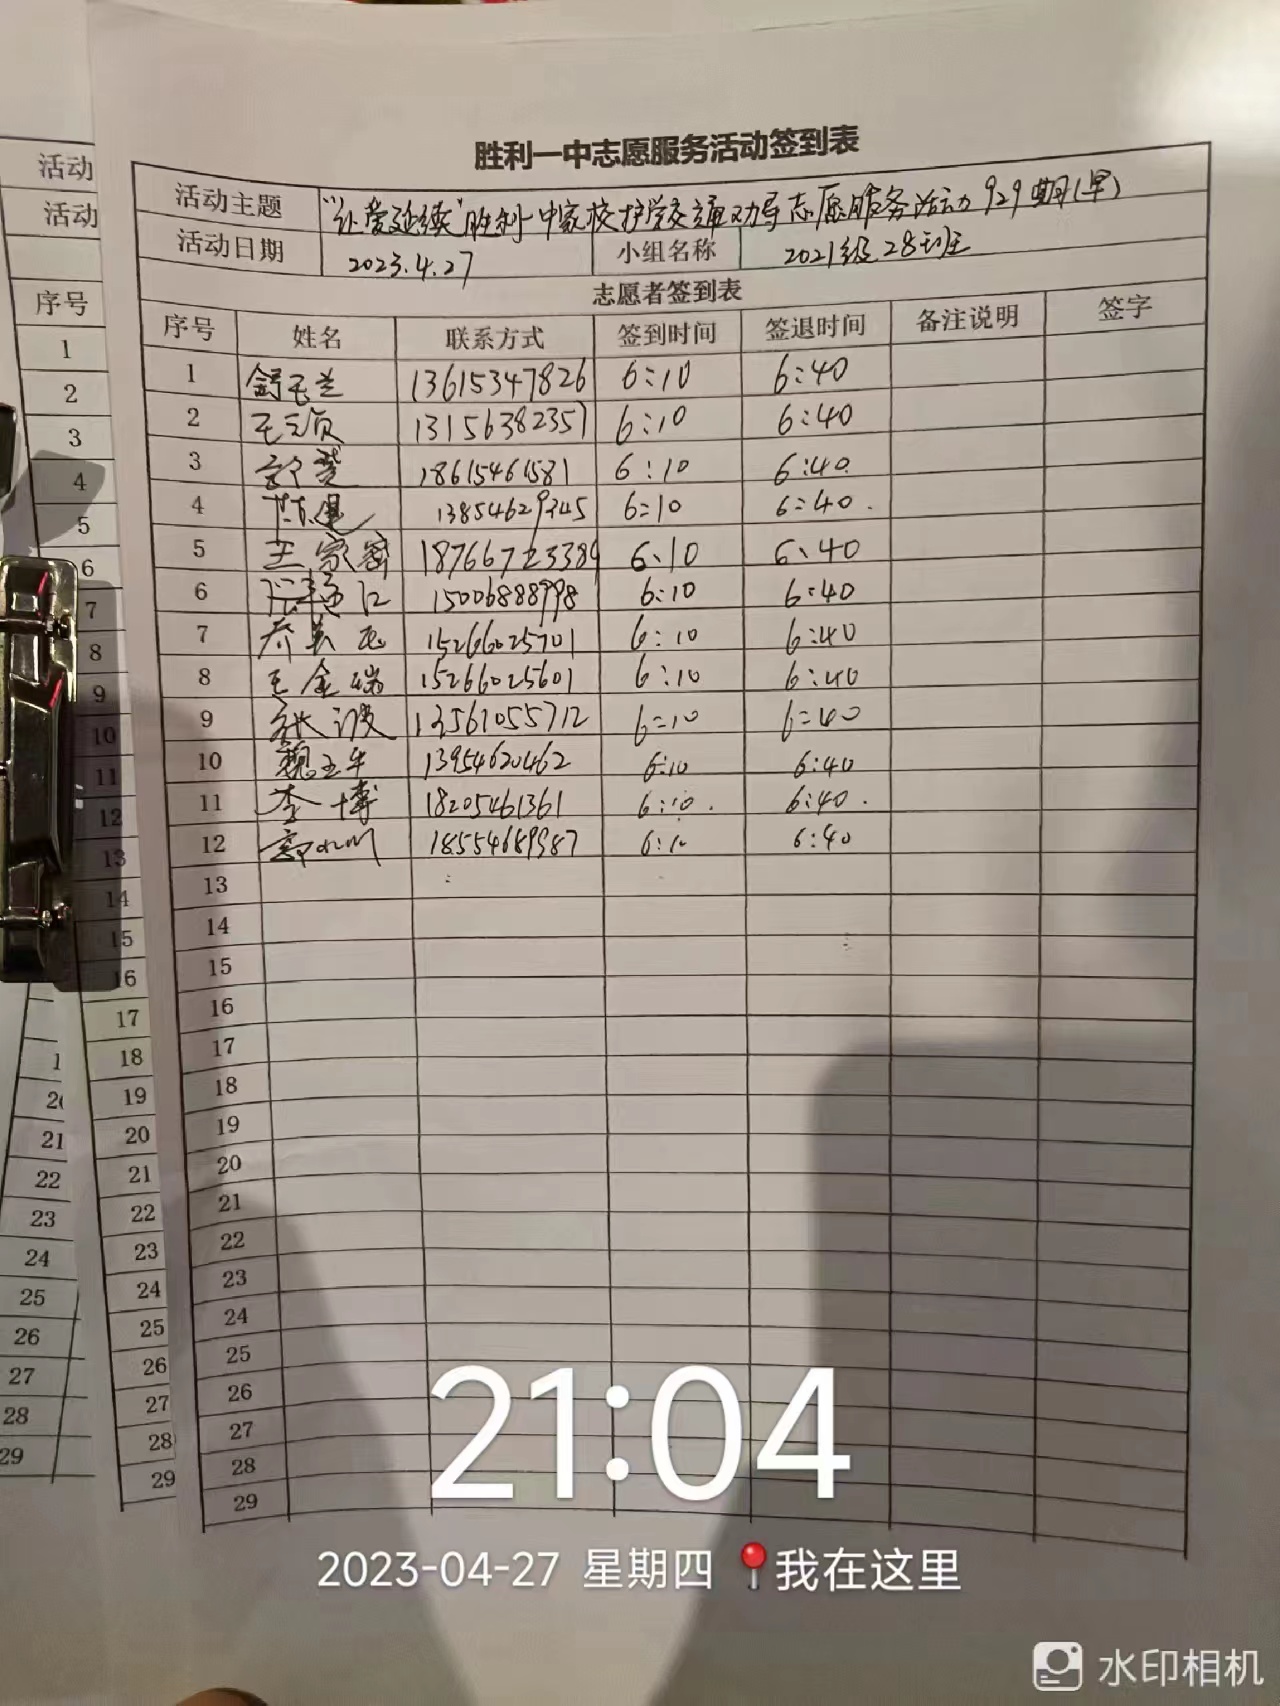 胜利一中志愿服务活动签到表
活动主题 “让爱延续”胜利一中家校护学交通劝导志愿服务活动929期(早)
活动日期 2023.4.27 小组名称 2021级28班
志愿者签到表
序号 姓名 联系方式 签到时间 签退时间 备注说明 签字
1 13615347826 6:10 6:40
2 13156382357 6:10 6:40
3 18615461581 6:10 6:40
4 陈 13854629345 6:10 6:40
5 王家 18766723389 6:10 6:40
6 15006888998 6:10 6:40
7 15266025701 6:10 6:40
8 王金瑞 15266025601 6:10 6:40
9 张波 13561055712 6:10 6:40
10 魏玉华 13954620462 6:10 6:40
11 李博 18205461361 6:10 6:40
12 18554689387 6:10 6:40
13
14
15
16
17
18
19
20
21
22
23
24
25
26
27
28
29
活动
活动
序号
1
2
3
4
5
6
7
8
9
10
11
12
13
14
15
16
17
18
19
20
21
22
23
24
25
26
27
28
29
21
22
23
24
25
26
27
28
29
21:04
2023-04-27 星期四 我在这里
水印相机